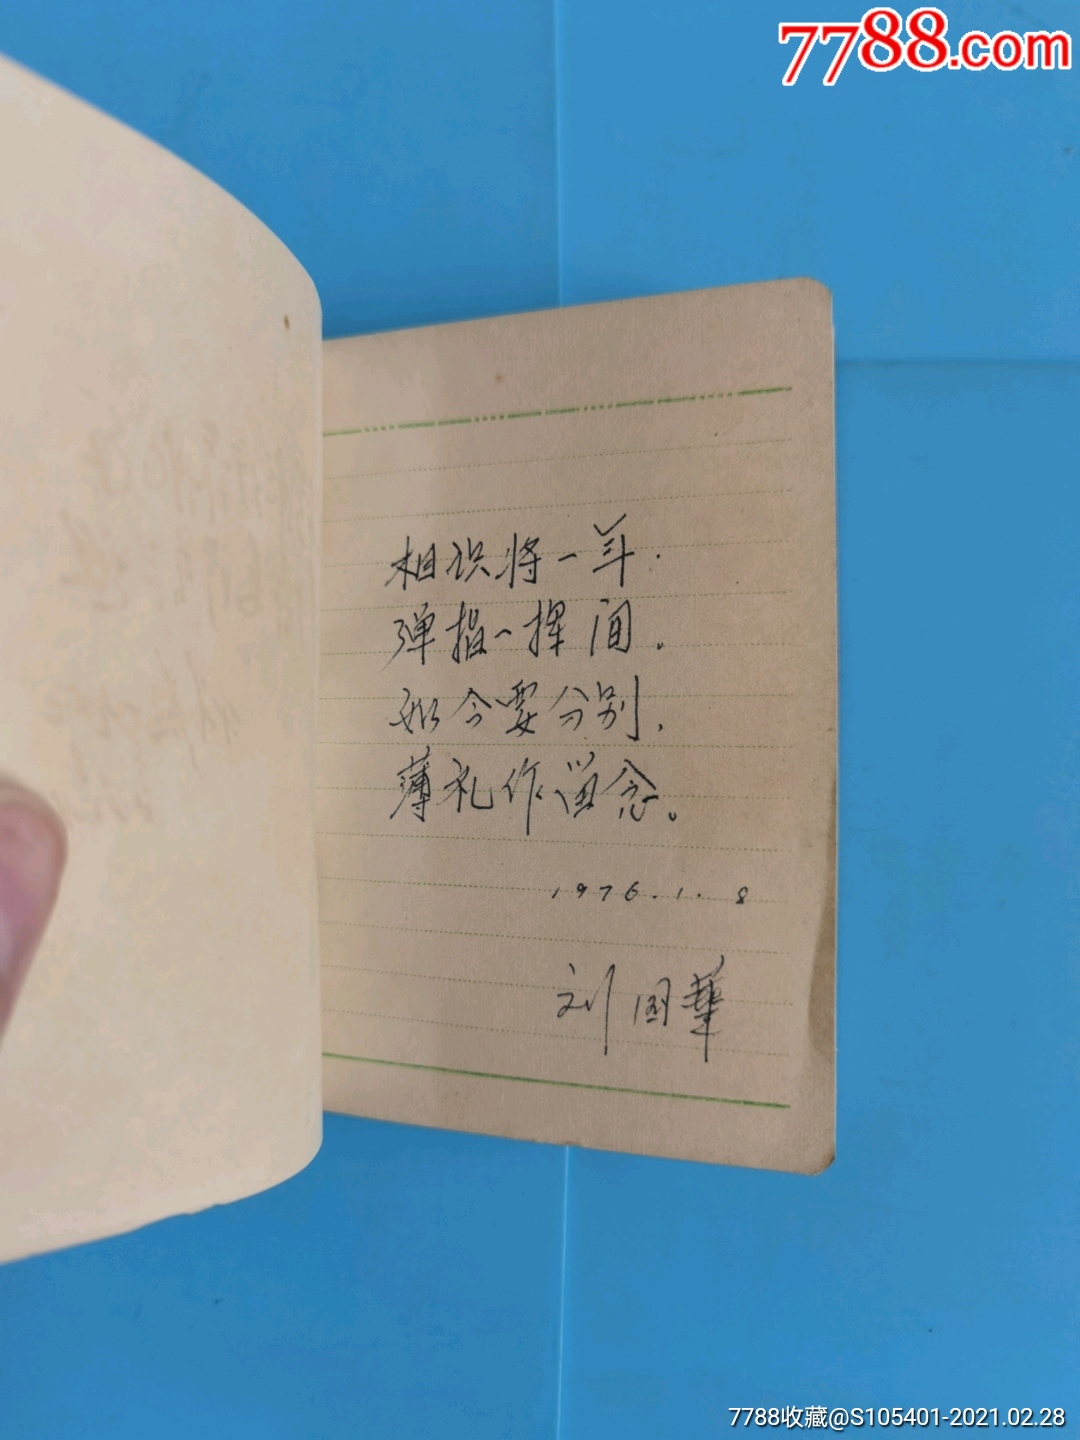 7788.com
相识将一年.
弹指一挥间。
如今要分别,
薄礼作留念。
1976.1.8
刘国華
7788收藏@S105401-2021.02.28